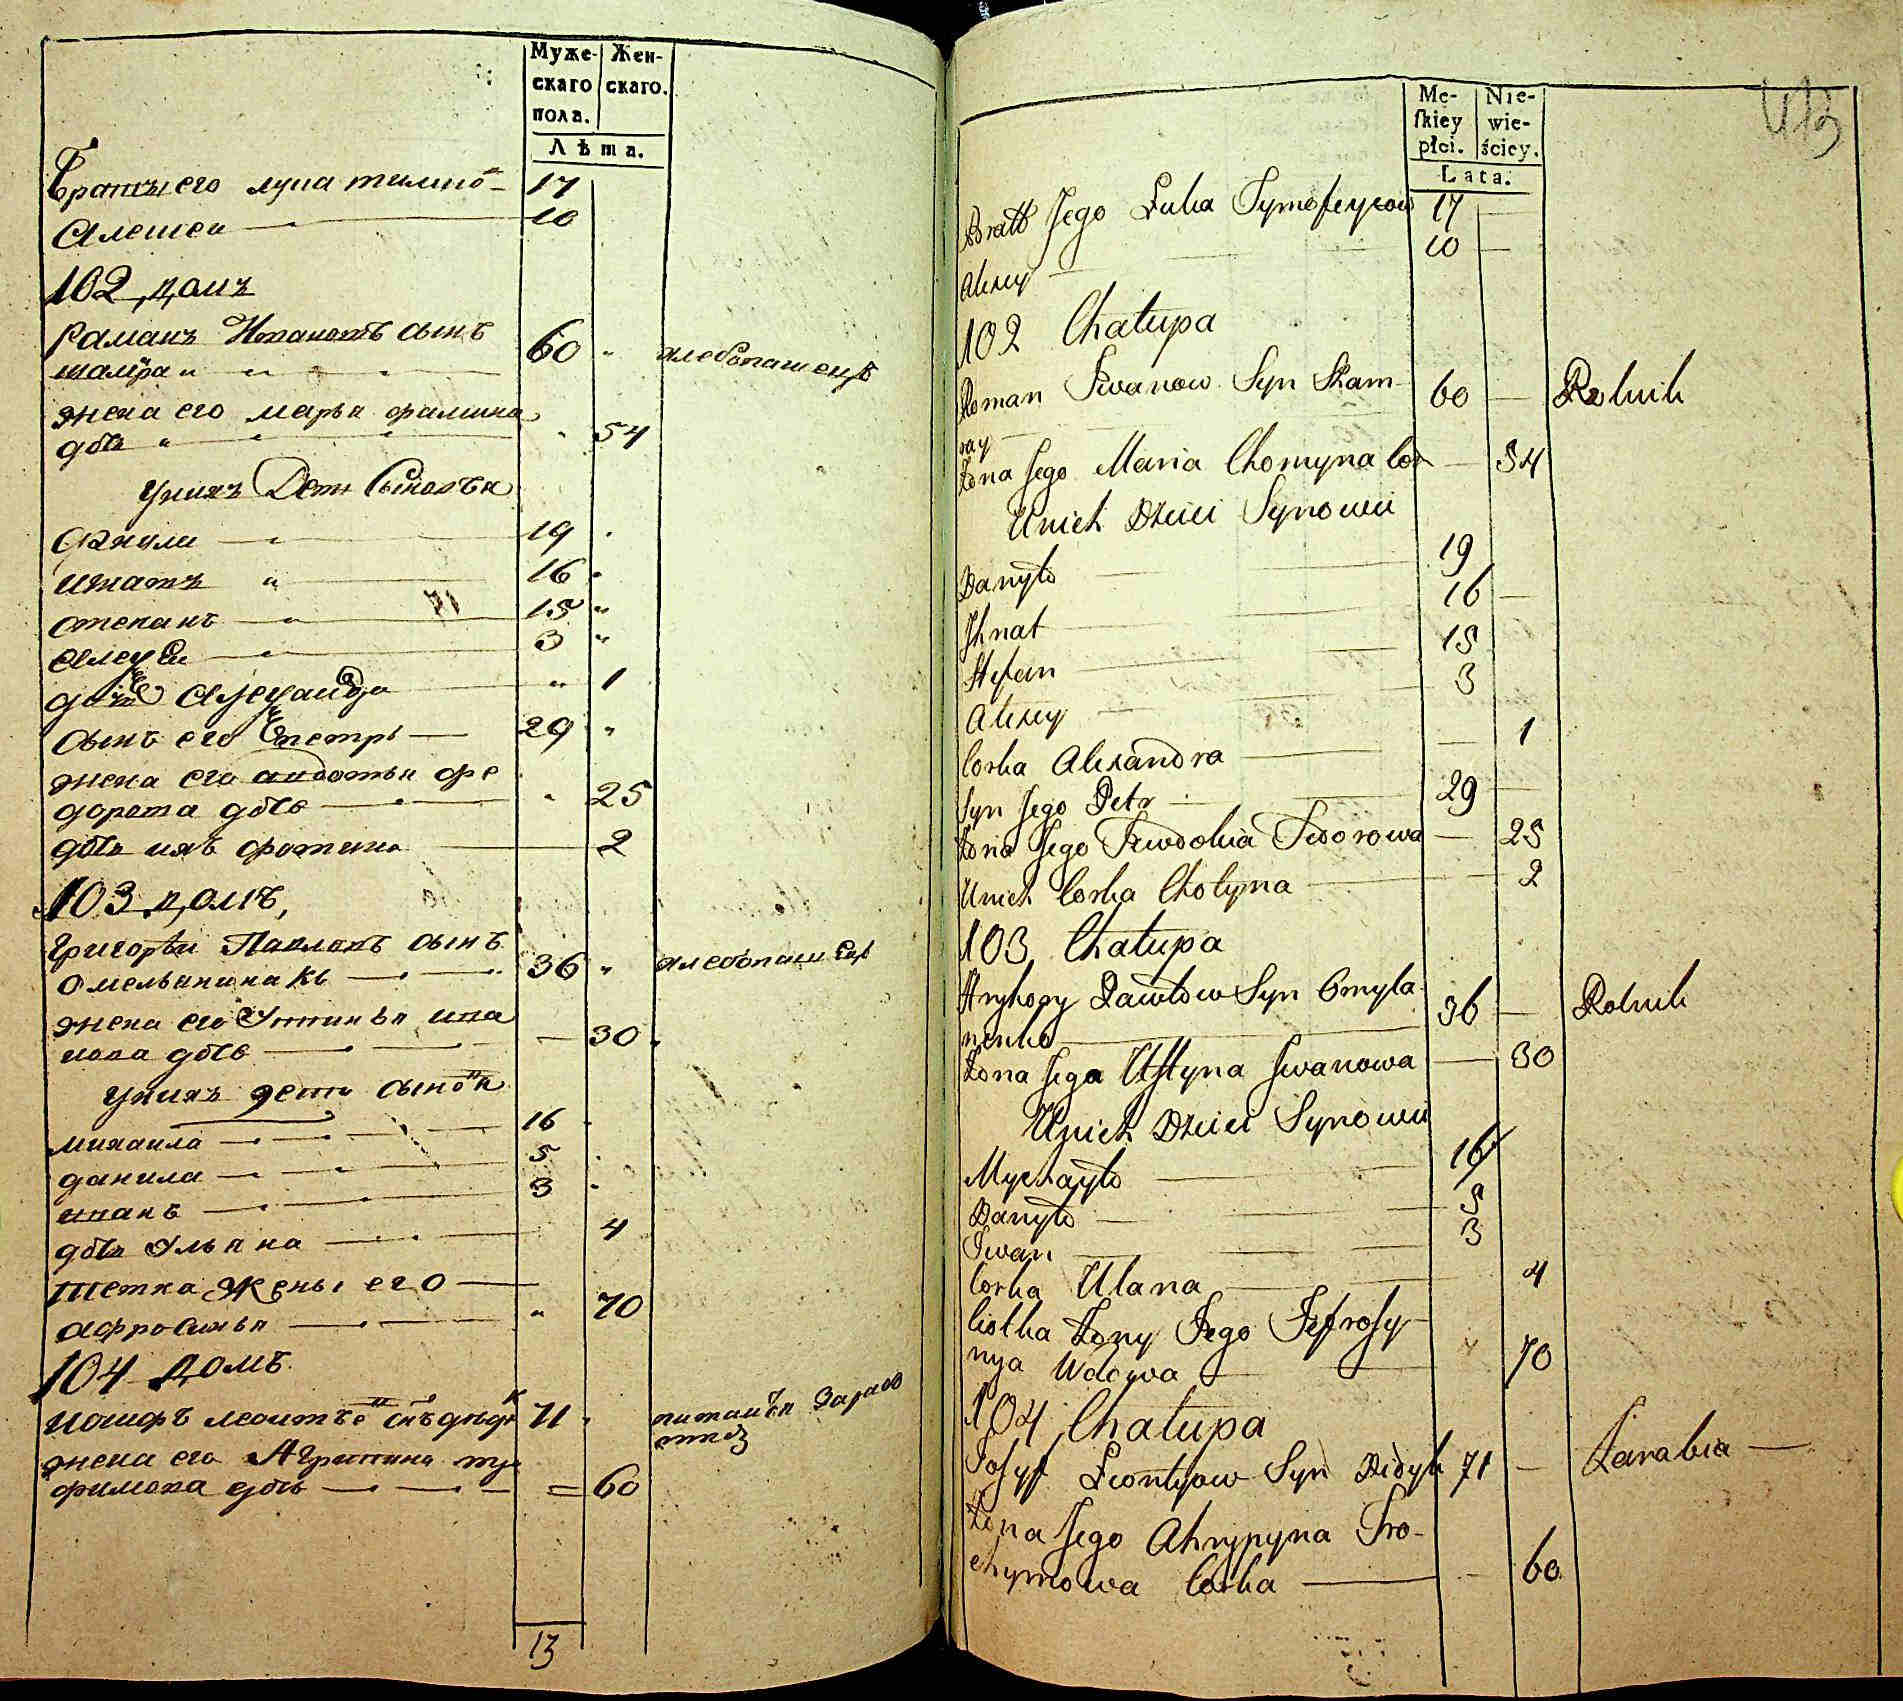 Муже-
скаго
пола.
Жен-
скаго.
Лѣта.
Братъ его лука тимпѳ 17
Алешеи 10
102 домъ
Раманъ Ивановъ сынъ
шамра 60 хлебопашецъ
жена его марья фамина
дочь 54
у них дети сыновья
данила 19
игнатъ 16
степанъ 15
алеѯеи 3
дочь Алеѯандра 1
сынъ его петръ 29
жена его авдотья фе
дорова дочь 25
дочь ихъ фотина 2
103 домъ,
Григореи Павловъ сынъ
омельяненкъ 36 хлебопашецъ
жена его Устинья ива
нова дочь 30
у нихъ дети сыновья
михаила 16
данила 5
иванъ 3
дочь Ульяна 4
тетка жены его
афросинья 70
104 домъ
иосифъ леонтьевъ снъ дидык 71 питаится зарабо
жена его Агрипина тро
фимова дочь 60
13
Mę-
skiey
płci.
Nie-
wie-
ściey.
Lata.
413
Bratt Jego Łuka Tymofeyeow 17
Alexey 10
102 Chałupa
Roman Jwanow Syn Szam- 60 Rolnik
ray
Żona Jego Maria Chomyna Cor 54
Unich Dzieci Synowie
Danyło 19
Jhnat 16
Stefan 15
Alexey 3
Corka Alexandra 1
Syn Jego Petr 29
Żona Jego Jewdokia Fedorowa 25
Unich Corka Chotyna 2
103 Chałupa
Hryhory Pawłow Syn Omyla- 36 Rolnik
nenko
Żona Jega Ustyna Jwanowa 30
Unich Dzieci Synowie
Mychayło 16
Danyło 5
Jwan 3
Corka Ulana 4
Ciotka Żony Jego Jefrosy-
nya Wdowa 70
104 Chałupa
Josyf Leontyow Syn Didyk 71 Zarabia
Żona Jego Ahrypyna Tro-
chymowa Corka 60